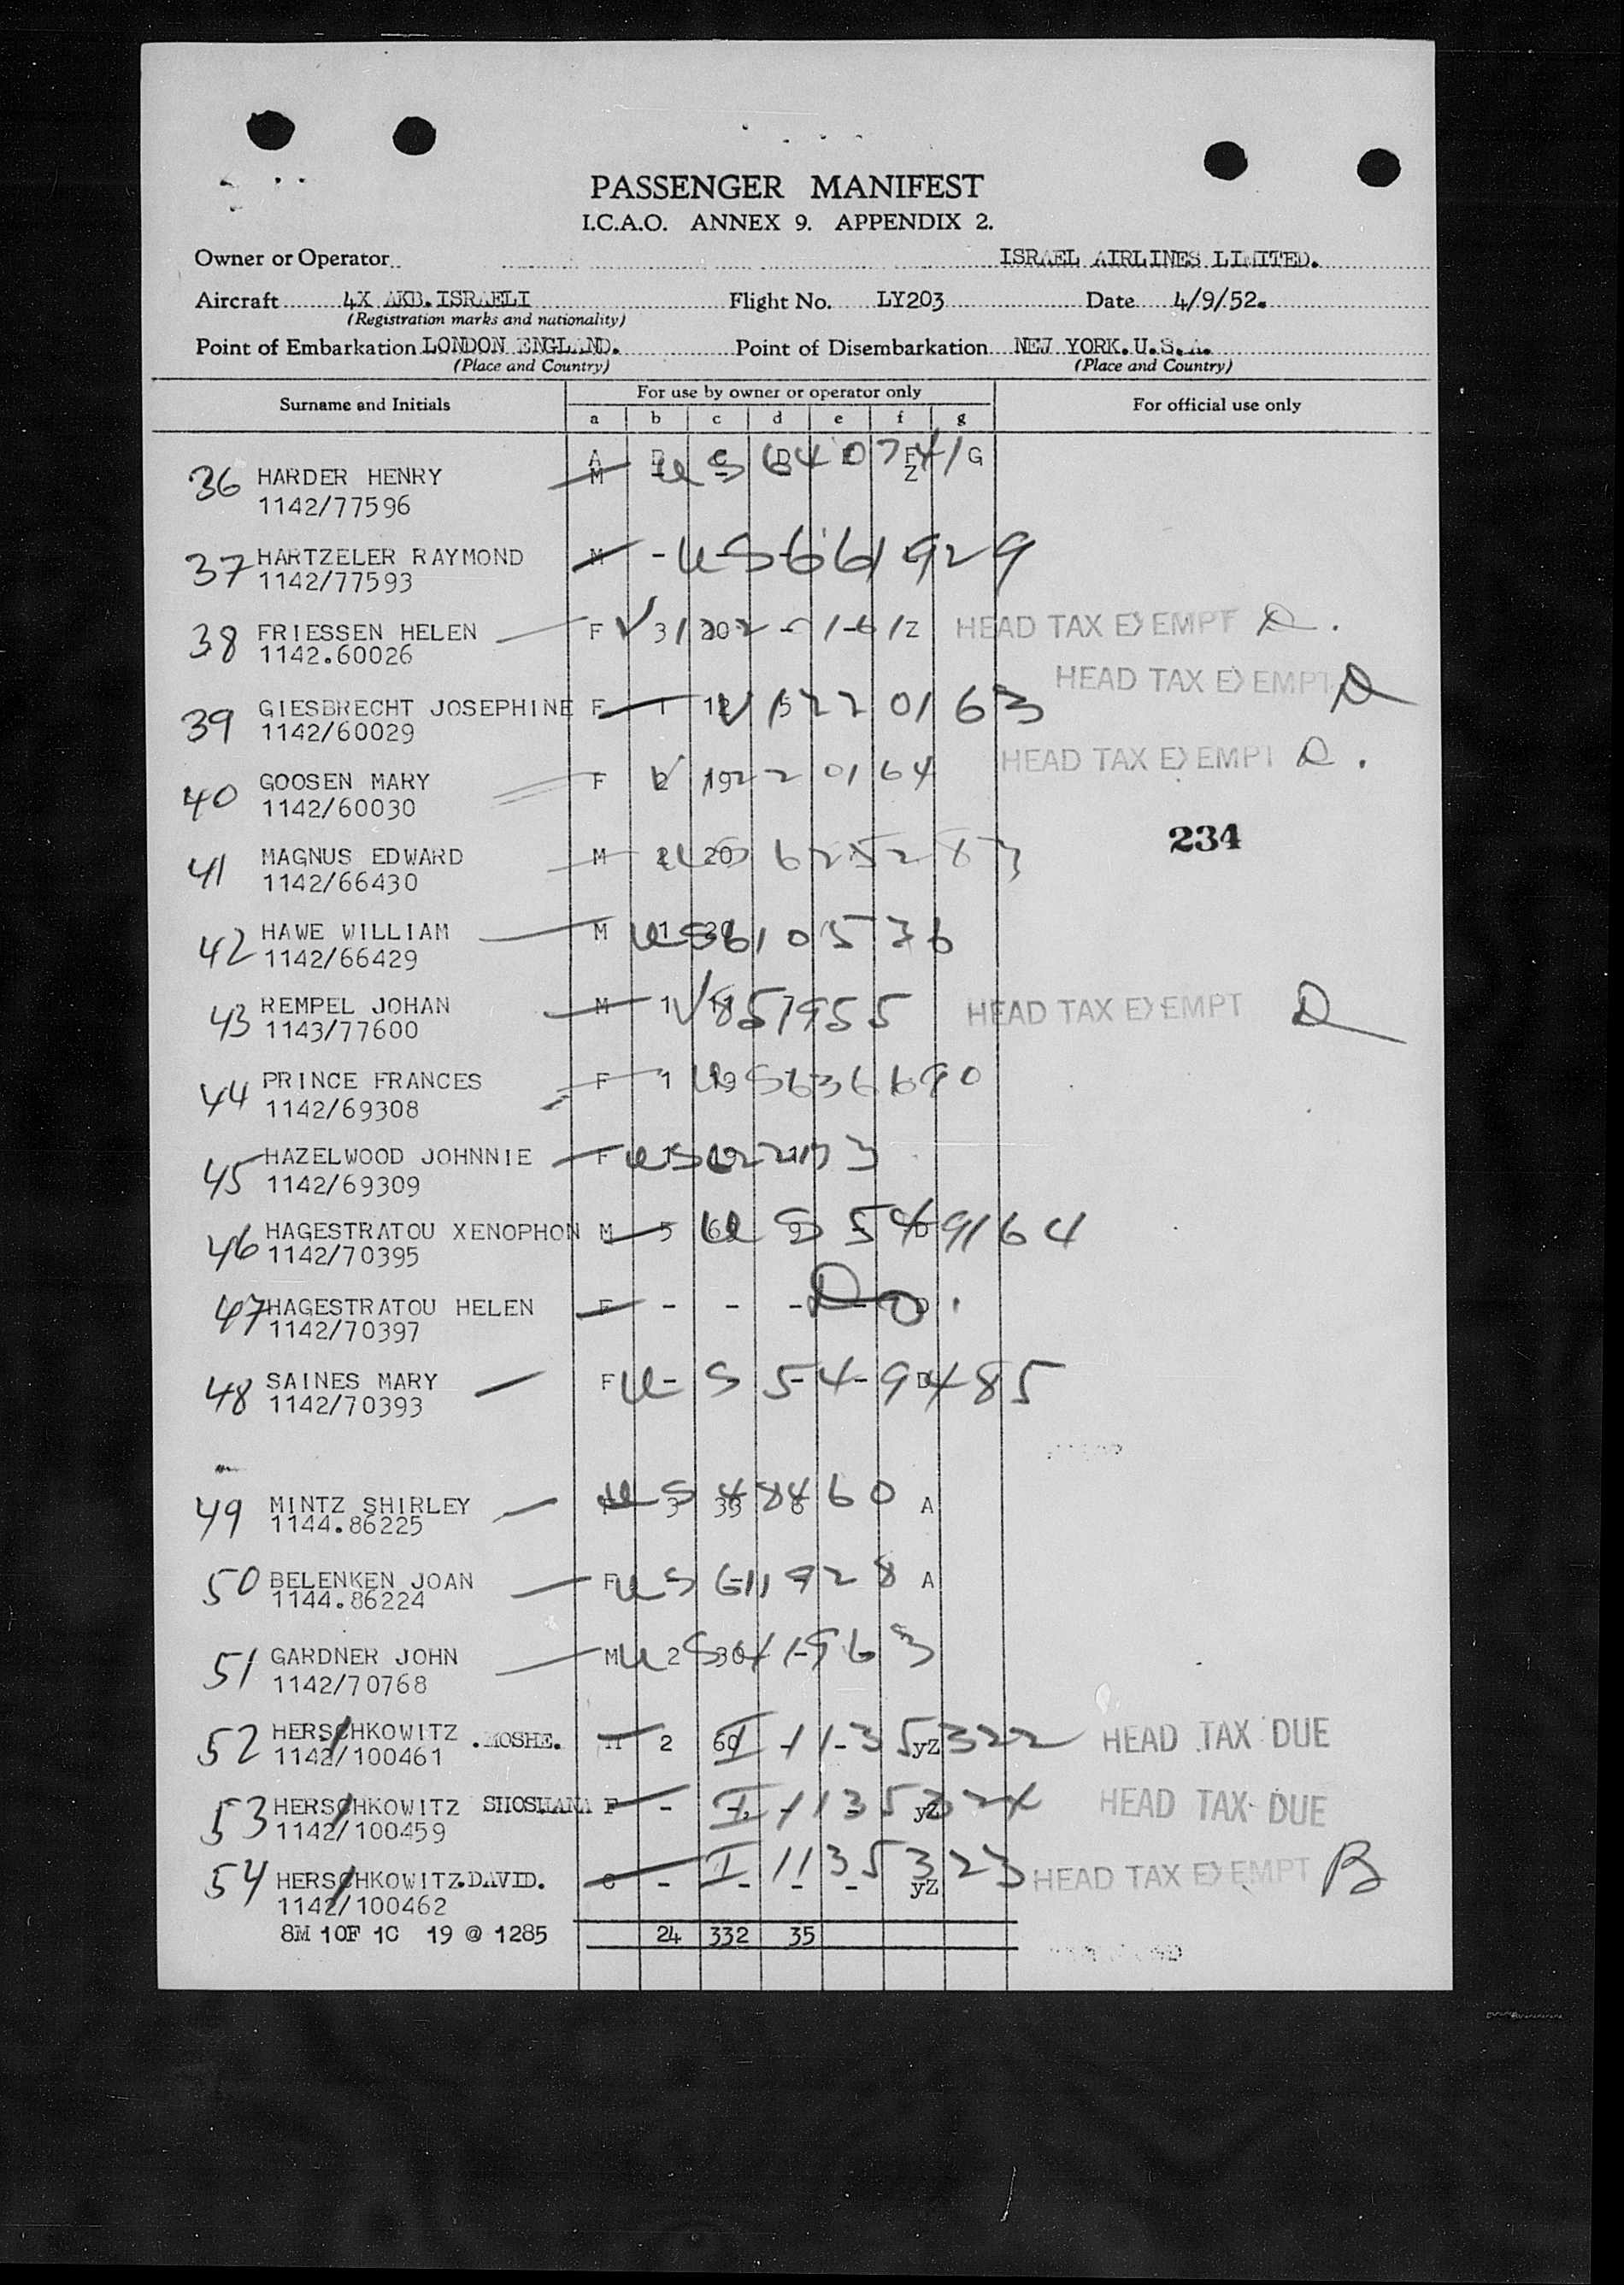 PASSENGER MANIFEST
I.C.A.O. ANNEX 9. APPENDIX 2.
Owner or Operator ISRAEL AIRLINES LIMITED.
Aircraft 4X AKB. ISRAELI Flight No. LY203 Date 4/9/52.
(Registration marks and nationality)
Point of Embarkation LONDON ENGLAND. Point of Disembarkation NEW YORK. U.S.A.
(Place and Country) (Place and Country)
Surname and Initials For use by owner or operator only For official use only
a b c d e f g
36 HARDER HENRY M US 640741 G
Z
1142/77596
37 HARTZELER RAYMOND M - US 661929
1142/77593
38 FRIESSEN HELEN F Z HEAD TAX EXEMPT D.
1142.60026
HEAD TAX EXEMPT D
39 GIESBRECHT JOSEPHINE F 1 V 1220163
1142/60029
HEAD TAX EXEMPT D.
40 GOOSEN MARY F V 1220164
1142/60030
234
41 MAGNUS EDWARD M US 625283
1142/66430
42 HAWE WILLIAM M US 610576
1142/66429
43 REMPEL JOHAN M 1 V 857955 HEAD TAX EXEMPT D
1143/77600
44 PRINCE FRANCES F 1 US 636690
1142/69308
45 HAZELWOOD JOHNNIE F US
1142/69309
46 HAGESTRATOU XENOPHON M 5 US 549164
1142/70395
47 HAGESTRATOU HELEN F - - - Do.
1142/70397
48 SAINES MARY F US 549485
1142/70393
49 MINTZ SHIRLEY US 48460 A
1144.86225
50 BELENKEN JOAN F US 611928 A
1144.86224
51 GARDNER JOHN M 2 US 41963
1142/70768
52 HERSCHKOWITZ .MOSHE. M 2 60 I - 1135322 yZ HEAD TAX DUE
1142/100461
53 HERSCHKOWITZ SHOSHANA F - I - 1135324 yZ HEAD TAX DUE
1142/100459
54 HERSCHKOWITZ.DAVID. C - I 1135323 yZ HEAD TAX EXEMPT B
1142/100462
8M 10F 1C 19 @ 1285 24 332 35